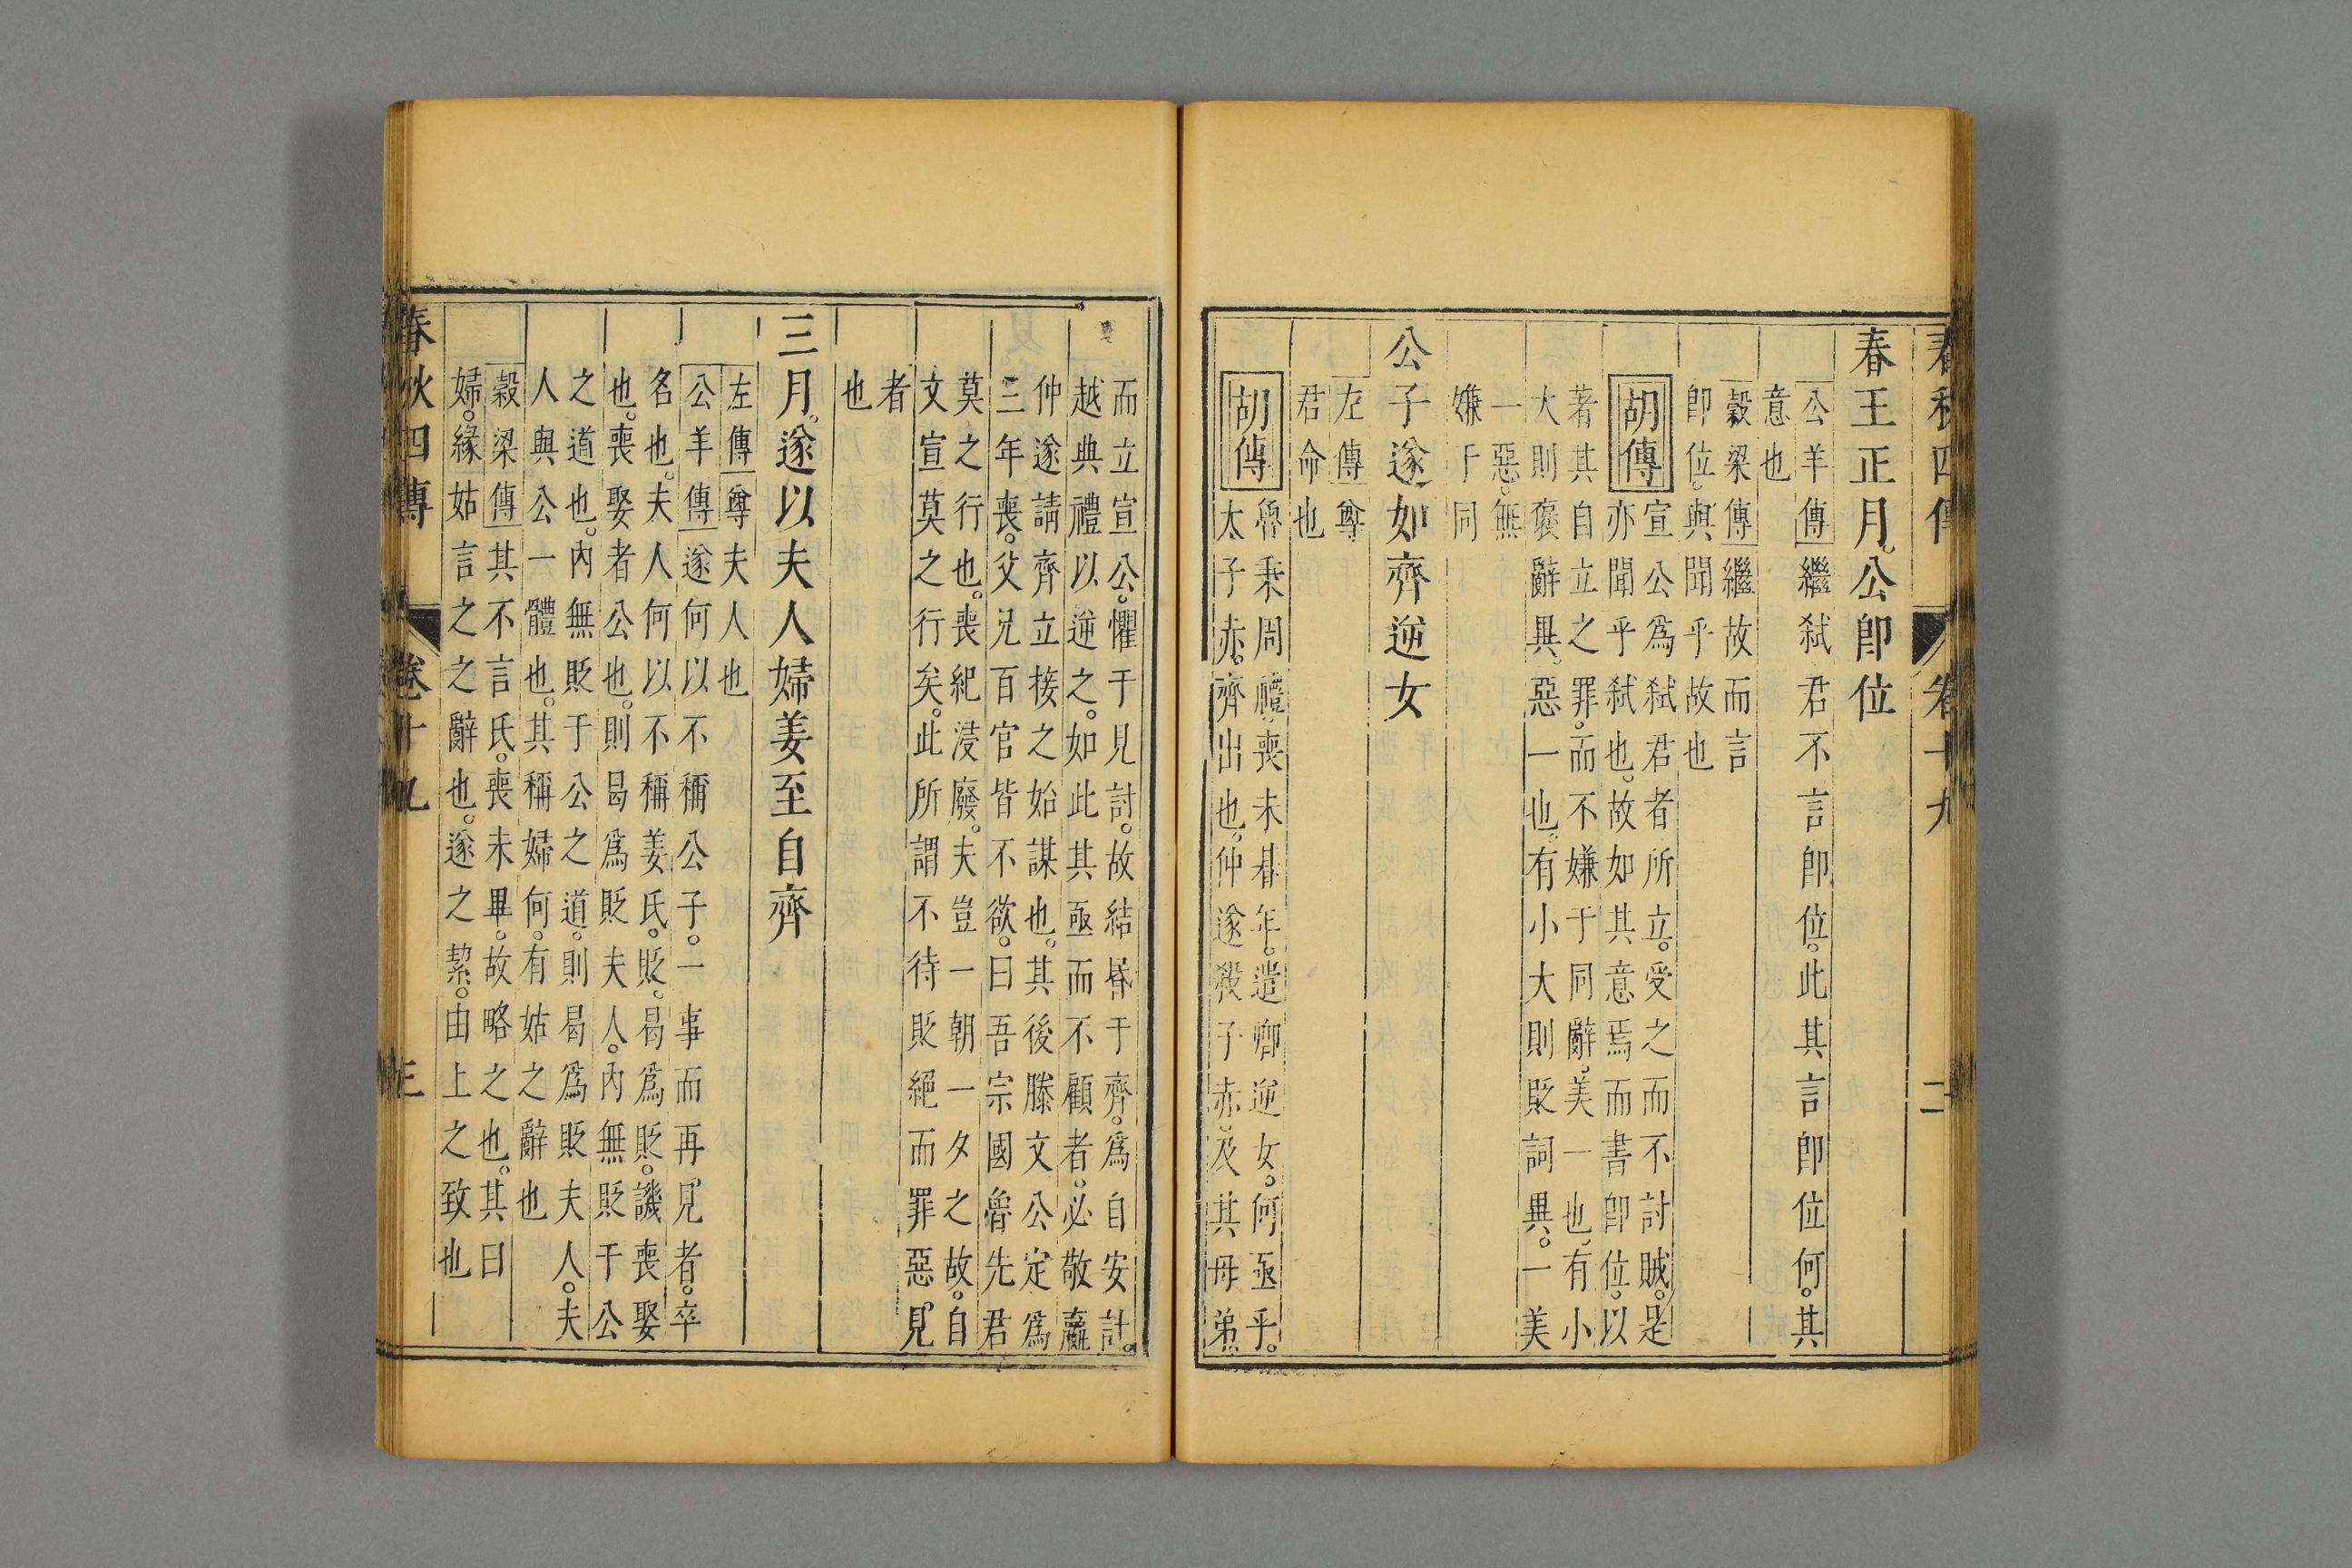 春秋四傳 卷十九 二
春王正月。公卽位
公羊傳繼弒君不言卽位。此其言卽位何。其
意也
穀梁傳繼故而言
卽位。與聞乎故也
胡傳宣公爲弒君者所立。受之而不討賊。是
亦聞乎弒也。故如其意焉而書卽位。以
著其自立之罪。而不嫌于同辭。美一也。有小
大則褒辭異。惡一也。有小大則貶詞異。一美
一惡。無
嫌于同
公子遂如齊逆女
左傳尊
君命也
胡傳魯秉周禮。喪未朞年。遣卿逆女。何亟乎。
太子赤。齊出也。仲遂殺子赤。及其母弟。
而立宣公。懼于見討。故結昏于齊。爲自安計。
越典禮以逆之。如此其亟而不顧者。必敬嬴
仲遂請齊立接之始謀也。其後滕文公定爲
三年喪。父兄百官皆不欲。曰吾宗國魯先君
莫之行也。喪紀浸廢。夫豈一朝一夕之故。自
文宣莫之行矣。此所謂不待貶絕而罪惡見
者
也
三月。遂以夫人婦姜至自齊
左傳尊夫人也
公羊傳遂何以不稱公子。一事而再見者。卒
名也。夫人何以不稱姜氏。貶。曷爲貶。譏喪娶
也。喪娶者公也。則曷爲貶夫人。內無貶于公
之道也。內無貶于公之道。則曷爲貶夫人。夫
人與公一體也。其稱婦何。有姑之辭也
穀梁傳其不言氏。喪未畢。故略之也。其曰
婦。緣姑言之之辭也。遂之挈。由上之致也
春秋四傳 卷十九 三